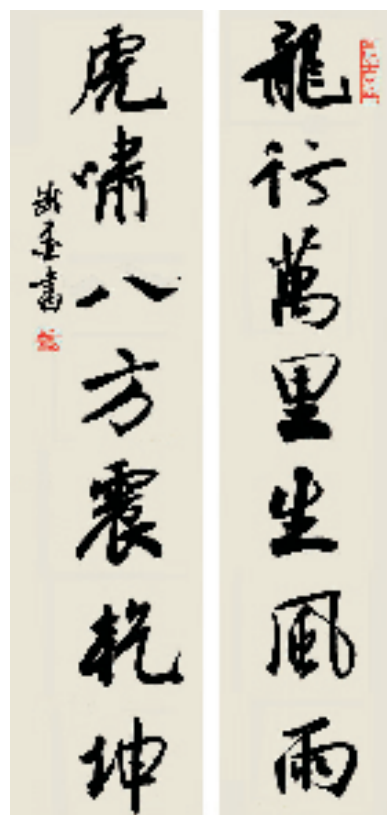 龍行萬里生風雨
虎嘯八方震乾坤